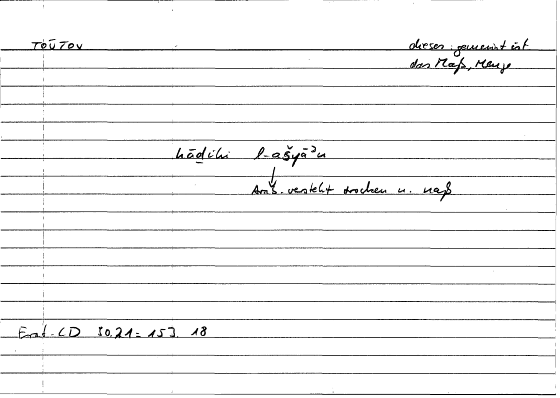 τούτου
dieses: gemeint ist
das Maß, Menge
hāḏihi l-ašyāʾu
↓
Arab. versteht trocken u. naß
30.21 = 153. 18